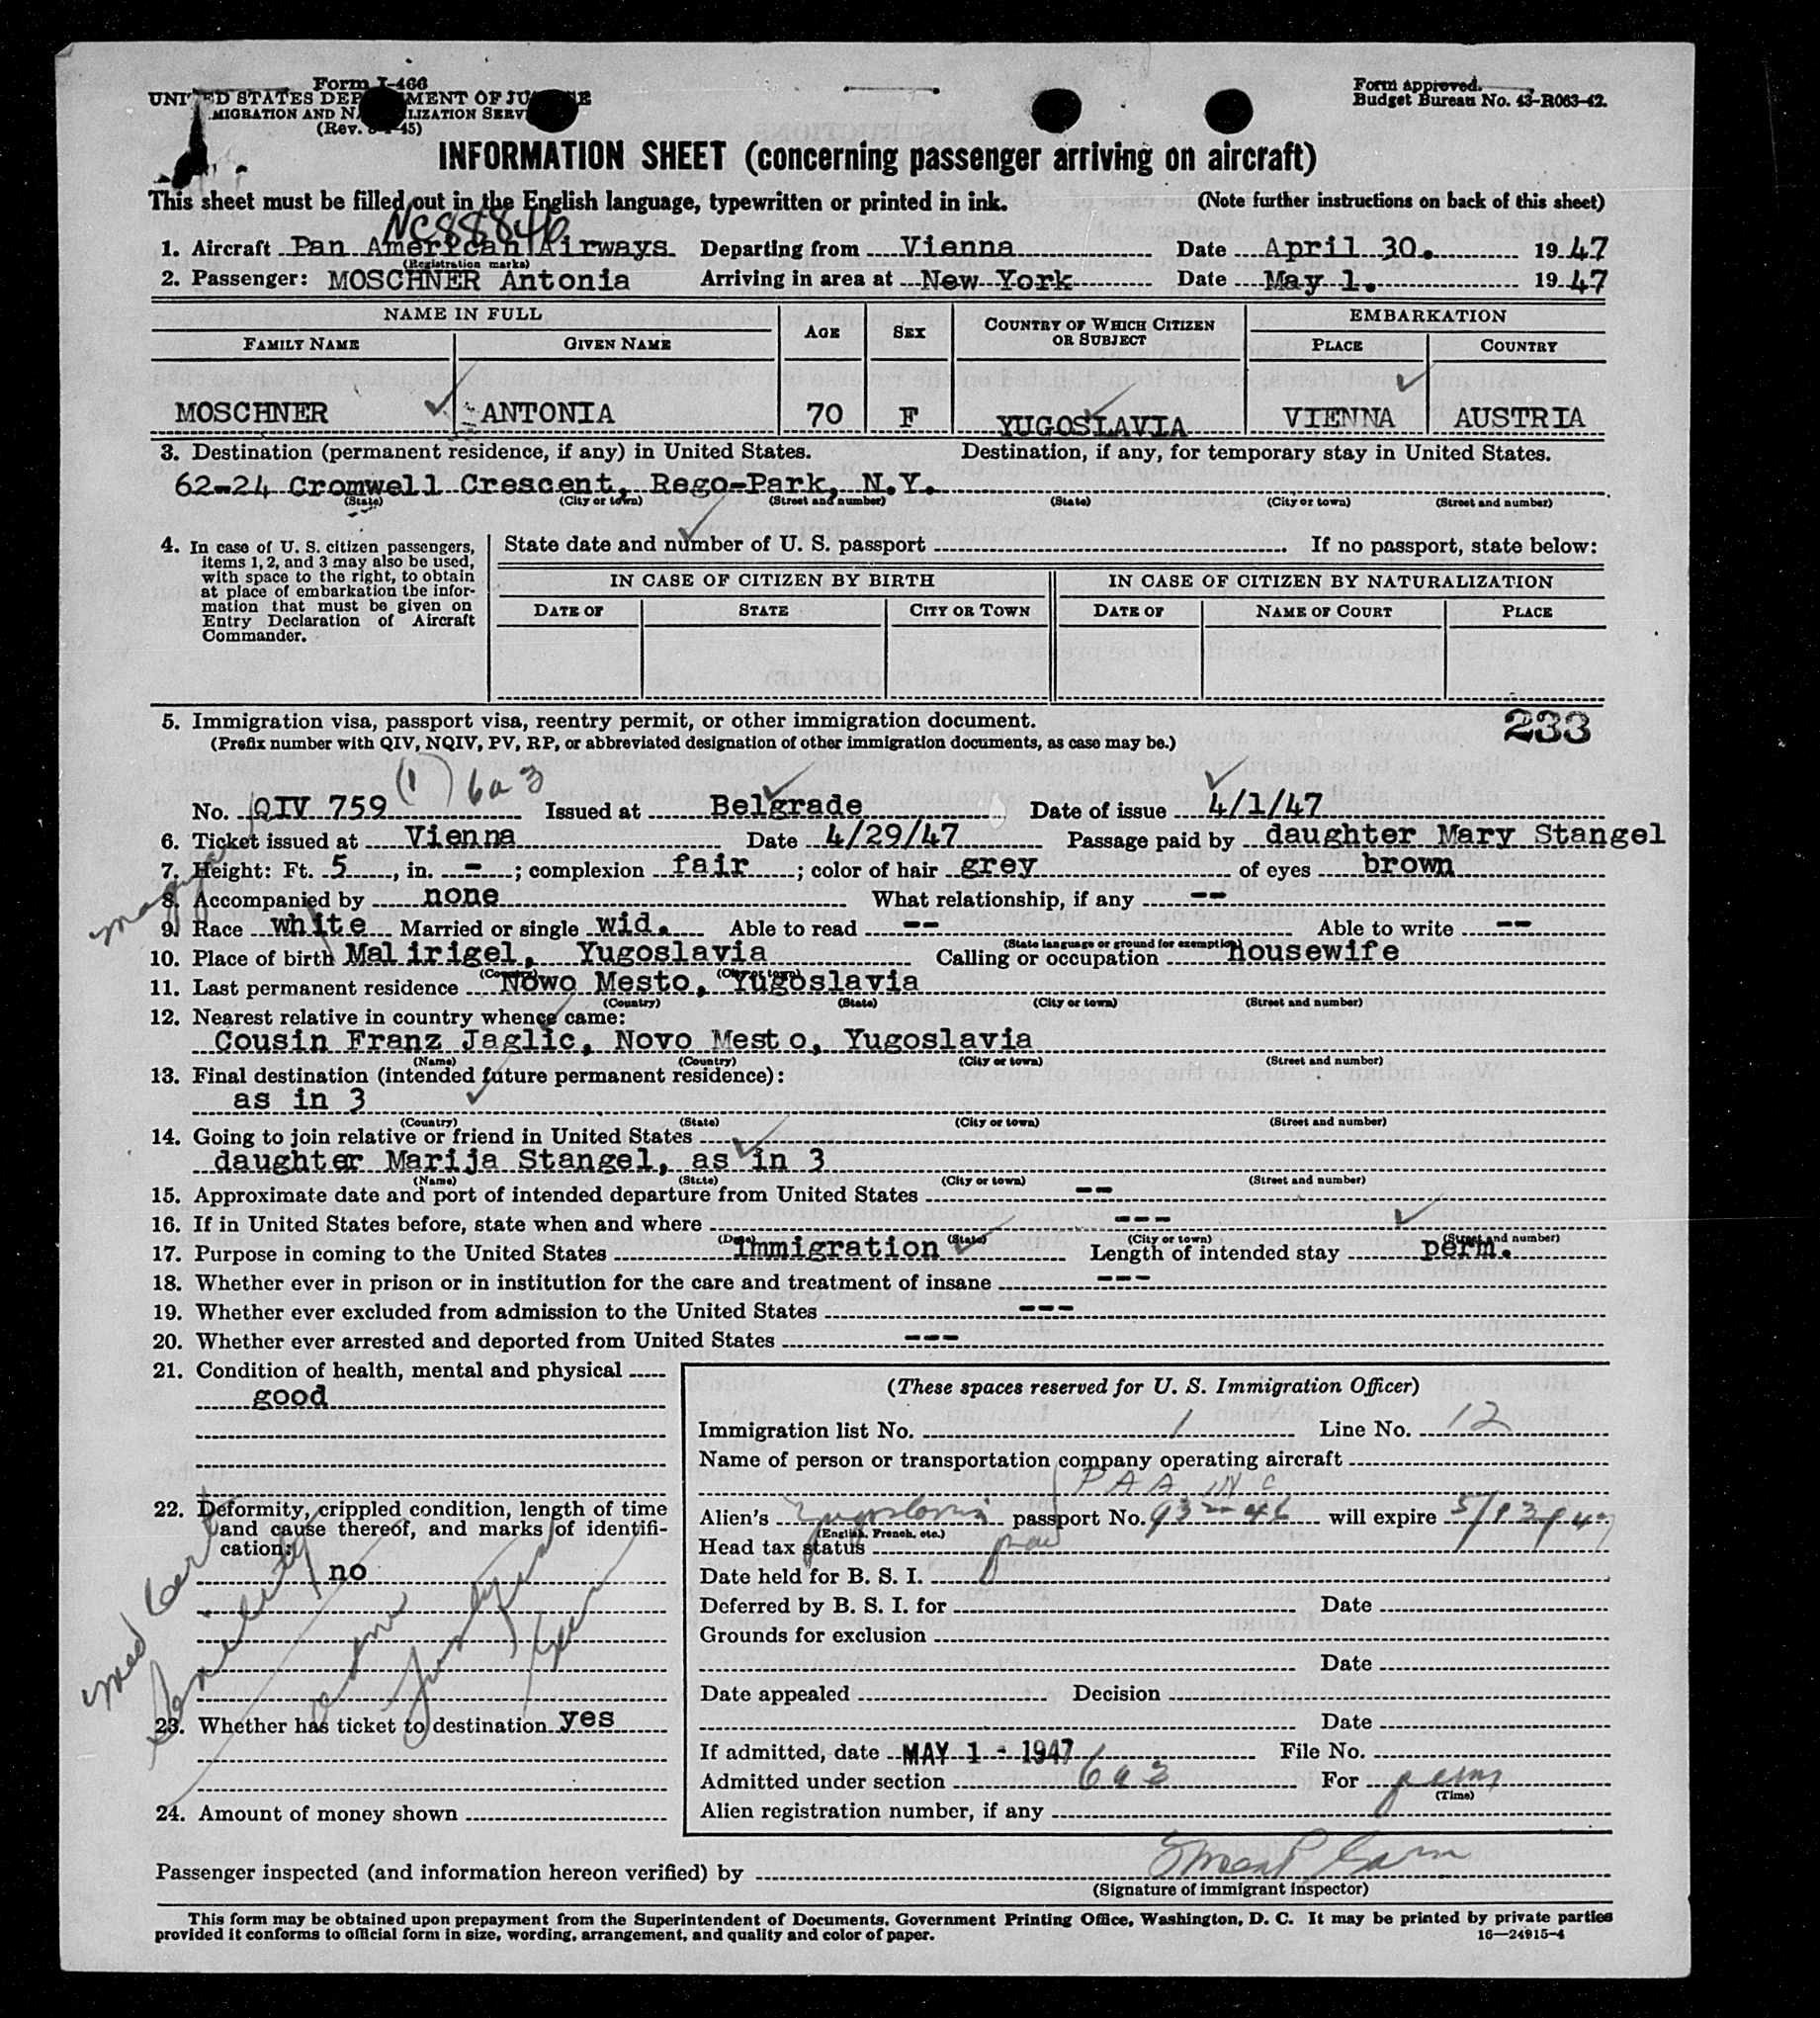 Form I-466
Form approved.
UNITED STATES DEPARTMENT OF JUSTICE
Budget Bureau No. 43-R063-42.
IMMIGRATION AND NATURALIZATION SERVICE
(Rev. 45)
INFORMATION SHEET (concerning passenger arriving on aircraft)
This sheet must be filled out in the English language, typewritten or printed in ink. (Note further instructions on back of this sheet)
NC88846
1. Aircraft Pan American Airways Departing from Vienna Date April 30. 1947
(Registration marks)
2. Passenger: MOSCHNER Antonia Arriving in area at New York Date May 1. 1947
NAME IN FULL AGE SEX COUNTRY OF WHICH CITIZEN OR SUBJECT EMBARKATION
FAMILY NAME GIVEN NAME PLACE COUNTRY
MOSCHNER ANTONIA 70 F YUGOSLAVIA VIENNA AUSTRIA
3. Destination (permanent residence, if any) in United States. Destination, if any, for temporary stay in United States.
62-24 Cromwell Crescent, Rego-Park, N.Y.
(State) (City or town) (Street and number) (State) (City or town) (Street and number)
4. In case of U. S. citizen passengers, items 1, 2, and 3 may also be used, with space to the right, to obtain at place of embarkation the information that must be given on Entry Declaration of Aircraft Commander.
State date and number of U. S. passport If no passport, state below:
IN CASE OF CITIZEN BY BIRTH IN CASE OF CITIZEN BY NATURALIZATION
DATE OF STATE CITY OR TOWN DATE OF NAME OF COURT PLACE
5. Immigration visa, passport visa, reentry permit, or other immigration document. 233
(Prefix number with QIV, NQIV, PV, RP, or abbreviated designation of other immigration documents, as case may be.)
(1) 6a3
No. QIV 759 Issued at Belgrade Date of issue 4/1/47
6. Ticket issued at Vienna Date 4/29/47 Passage paid by daughter Mary Stangel
7. Height: Ft. 5, in. -; complexion fair; color of hair grey of eyes brown
8. Accompanied by none What relationship, if any --
9. Race white Married or single wid. Able to read -- Able to write --
(State language or ground for exemption)
10. Place of birth Mal irigel, Yugoslavia Calling or occupation housewife
(Country) (City or town)
11. Last permanent residence Nowo Mesto, Yugoslavia
(Country) (State) (City or town) (Street and number)
12. Nearest relative in country whence came:
Cousin Franz Jaglic, Novo Mest o, Yugoslavia
(Name) (Country) (City or town) (Street and number)
13. Final destination (intended future permanent residence):
as in 3
(Country) (State) (City or town) (Street and number)
14. Going to join relative or friend in United States
daughter Marija Stangel, as in 3
(Name) (State) (City or town) (Street and number)
15. Approximate date and port of intended departure from United States --
16. If in United States before, state when and where ---
(Date) (State) (City or town) (Street and number)
17. Purpose in coming to the United States immigration Length of intended stay perm.
18. Whether ever in prison or in institution for the care and treatment of insane ---
19. Whether ever excluded from admission to the United States ---
20. Whether ever arrested and deported from United States ---
21. Condition of health, mental and physical
good
22. Deformity, crippled condition, length of time and cause thereof, and marks of identification:
no
med Cert
Senility
23. Whether has ticket to destination yes
24. Amount of money shown
(These spaces reserved for U. S. Immigration Officer)
Immigration list No. 1 Line No. 12
Name of person or transportation company operating aircraft
P A A INC
Alien's Yugoslavia passport No. 932-46 will expire 5/13/47
(English, French, etc.)
Head tax status
Date held for B. S. I.
Deferred by B. S. I. for Date
Grounds for exclusion
Date
Date appealed Decision
Date
If admitted, date MAY 1 - 1947 File No.
Admitted under section 6a3 For perm
(Time)
Alien registration number, if any
Passenger inspected (and information hereon verified) by
(Signature of immigrant inspector)
This form may be obtained upon prepayment from the Superintendent of Documents, Government Printing Office, Washington, D. C. It may be printed by private parties
provided it conforms to official form in size, wording, arrangement, and quality and color of paper. 16—24915-4